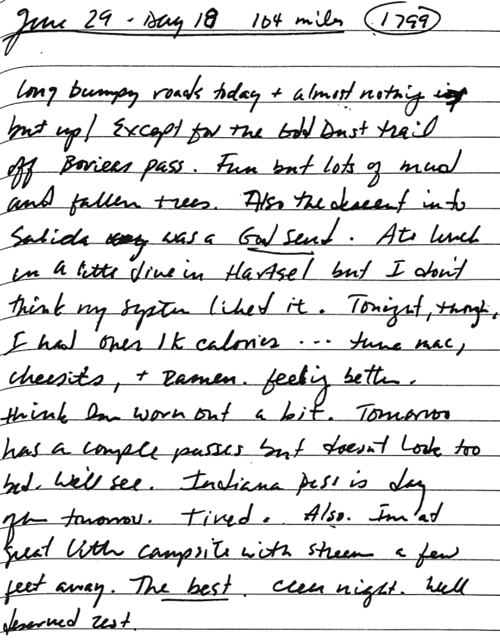 June 29 - Day 18 104 miles 1799
Long bumpy roads today + almost nothing
but up! Except for the Gold Dust trail
off Boreas pass. Fun but lots of mud
and fallen trees. Also the descent into
Salida was a God send. Ate lunch
in a little dive in Hartsel but I don't
think my system liked it. Tonight, though,
I had over 1k calories ... tuna mac,
cheesits, + Ramen. feeling better.
think I'm worn out a bit. Tomorrow
has a couple passes but doesn't look too
bad. We'll see. Indiana pass is day
after tomorrow. Tired. Also. I'm at
great little campsite with stream a few
feet away. The best. clear night. Well
deserved rest.